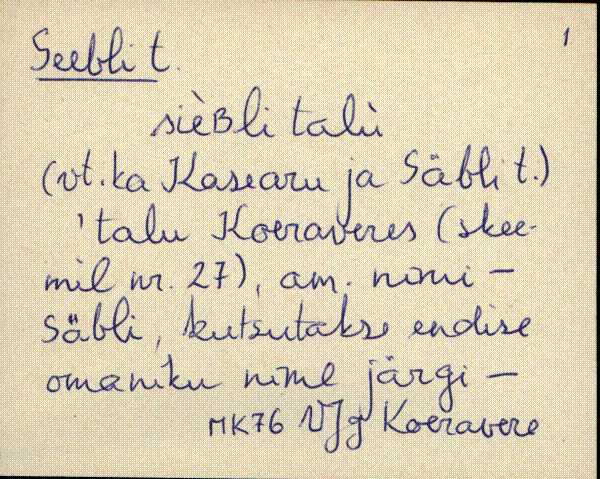 Seebli t. 1
sièBli talù
(vt. ka Kasearu ja Säbli t.)
'talu Koeraveres (skee-
mil nr. 27), am. nimi –
Säbli, kutsutakse endise
omaniku nime järgi –
MK76 VJg Koeravere